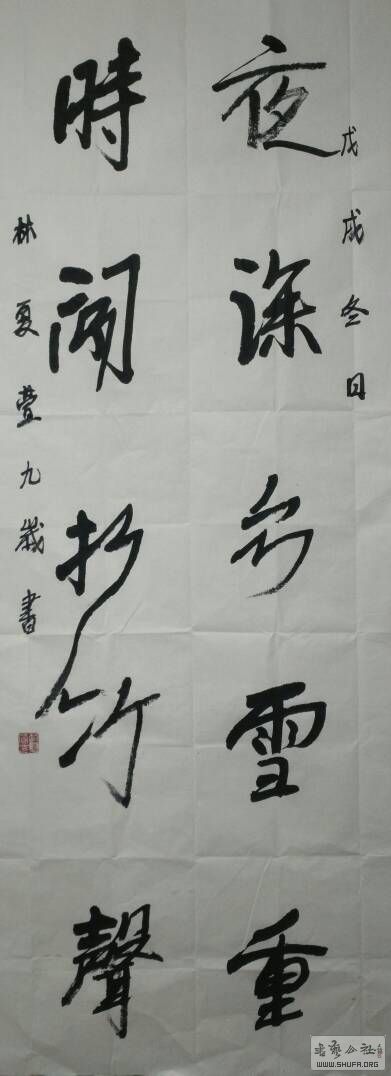 戊戌冬日
夜深知雪重
時聞折竹聲
林夏壹九歲書
WWW.SHUFA.ORG